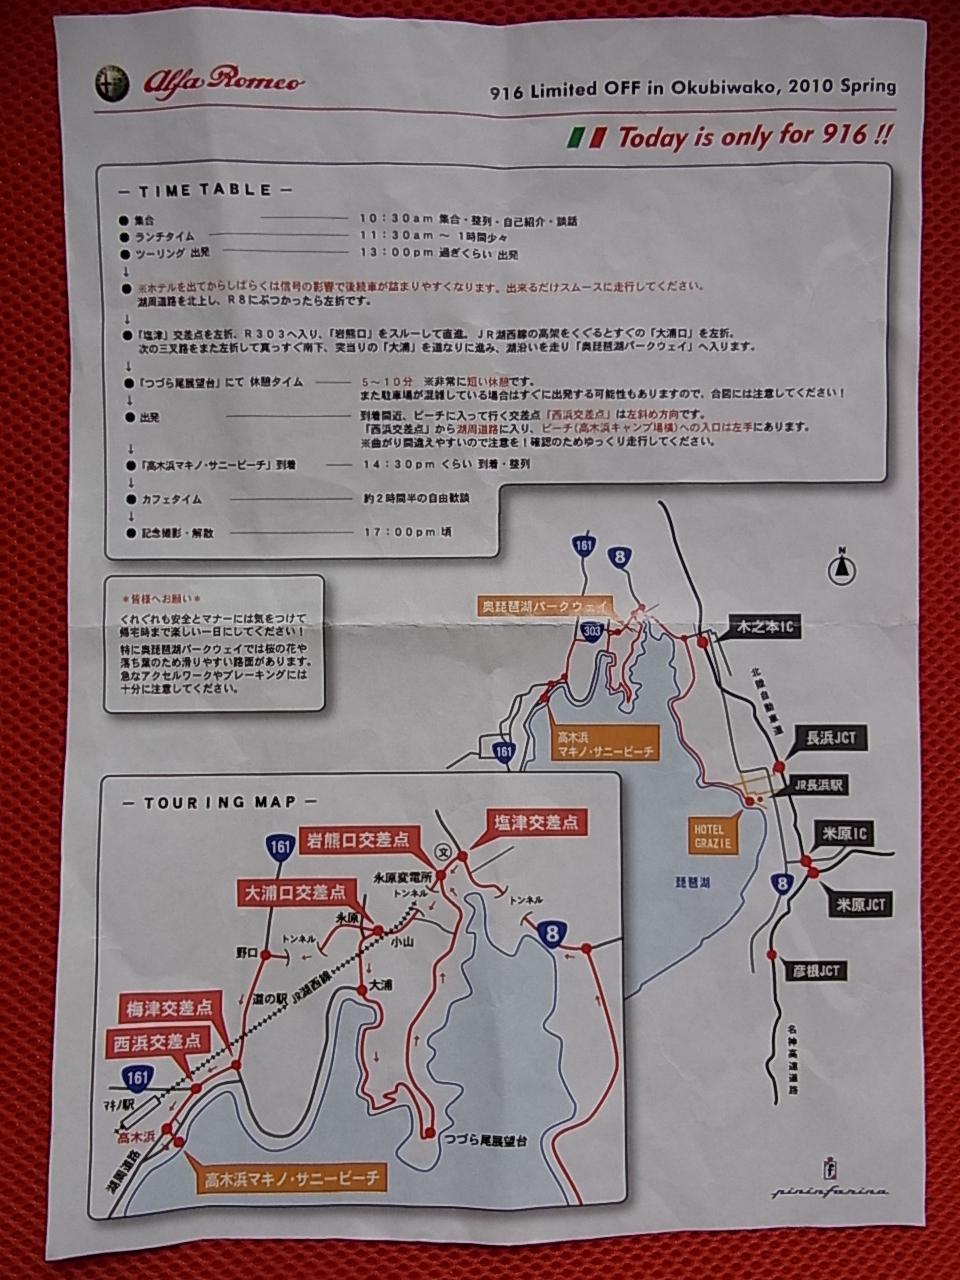 Alfa Romeo
916 Limited OFF in Okubiwako, 2010 Spring
Today is only for 916 !!
– TIME TABLE –
● 集合 10:30am 集合・整列・自己紹介・談話
● ランチタイム 11:30am ～ 1時間少々
● ツーリング 出発 13:00pm 過ぎくらい 出発
↓
● ※ホテルを出てからしばらくは信号の影響で後続車が詰まりやすくなります。出来るだけスムースに走行してください。
湖周道路を北上し、R8にぶつかったら左折です。
↓
● 「塩津」交差点を左折、R303へ入り、「岩熊口」をスルーして直進。JR湖西線の高架をくぐるとすぐの「大浦口」を左折。
次の三叉路をまた左折して真っすぐ南下、突当りの「大浦」を道なりに進み、湖沿いを走り「奥琵琶湖パークウェイ」へ入ります。
↓
● 「つづら尾展望台」にて 休憩タイム 5～10分 ※非常に短い休憩です。
また駐車場が混雑している場合はすぐに出発する可能性もありますので、合図には注意してください!
↓
● 出発 到着間近、ビーチに入って行く交差点「西浜交差点」は左斜め方向です。
「西浜交差点」から湖周道路に入り、ビーチ(高木浜キャンプ場横)への入口は左手にあります。
※曲がり間違えやすいので注意を!確認のためゆっくり走行してください。
↓
● 「高木浜マキノ・サニービーチ」到着 14:30pm くらい 到着・整列
↓
● カフェタイム 約2時間半の自由歓談
↓
● 記念撮影・解散 17:00pm 頃
*皆様へお願い*
くれぐれも安全とマナーには気をつけて
帰宅時まで楽しい一日にしてください!
特に奥琵琶湖パークウェイでは桜の花や
落ち葉のため滑りやすい路面があります。
急なアクセルワークやブレーキングには
十分に注意してください。
161
8
N
奥琵琶湖パークウェイ
303
木之本IC
北陸自動車道
高木浜
マキノ・サニービーチ
161
長浜JCT
JR長浜駅
HOTEL
GRAZIE
米原IC
琵琶湖
8
米原JCT
彦根JCT
名神高速道路
– TOURING MAP –
塩津交差点
161
岩熊口交差点
文
永原変電所
大浦口交差点
トンネル
トンネル
永原
小山
8
野口
トンネル
道の駅
JR湖西線
大浦
梅津交差点
西浜交差点
161
マキノ駅
高木浜
つづら尾展望台
湖周道路
高木浜マキノ・サニービーチ
f
pininfarina